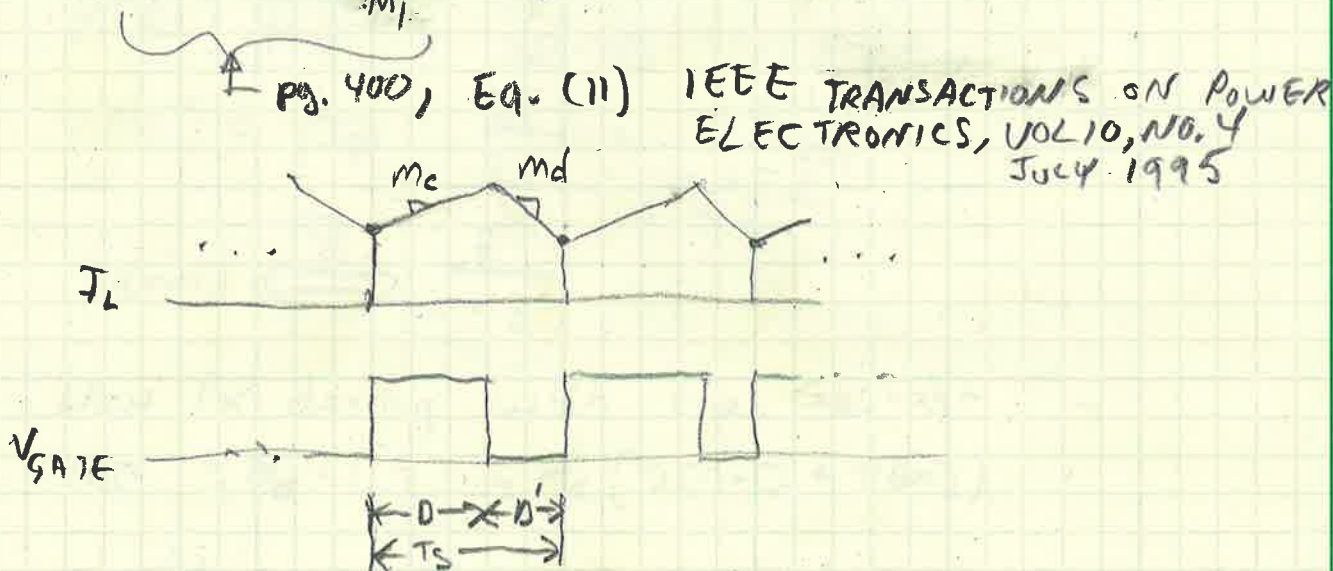 M1
pg. 400, Eq. (11) IEEE TRANSACTIONS ON POWER
ELECTRONICS, VOL 10, NO. 4
JULY 1995
mc md
. . . . . .
IL
. . . . . .
VGATE
D D'
TS